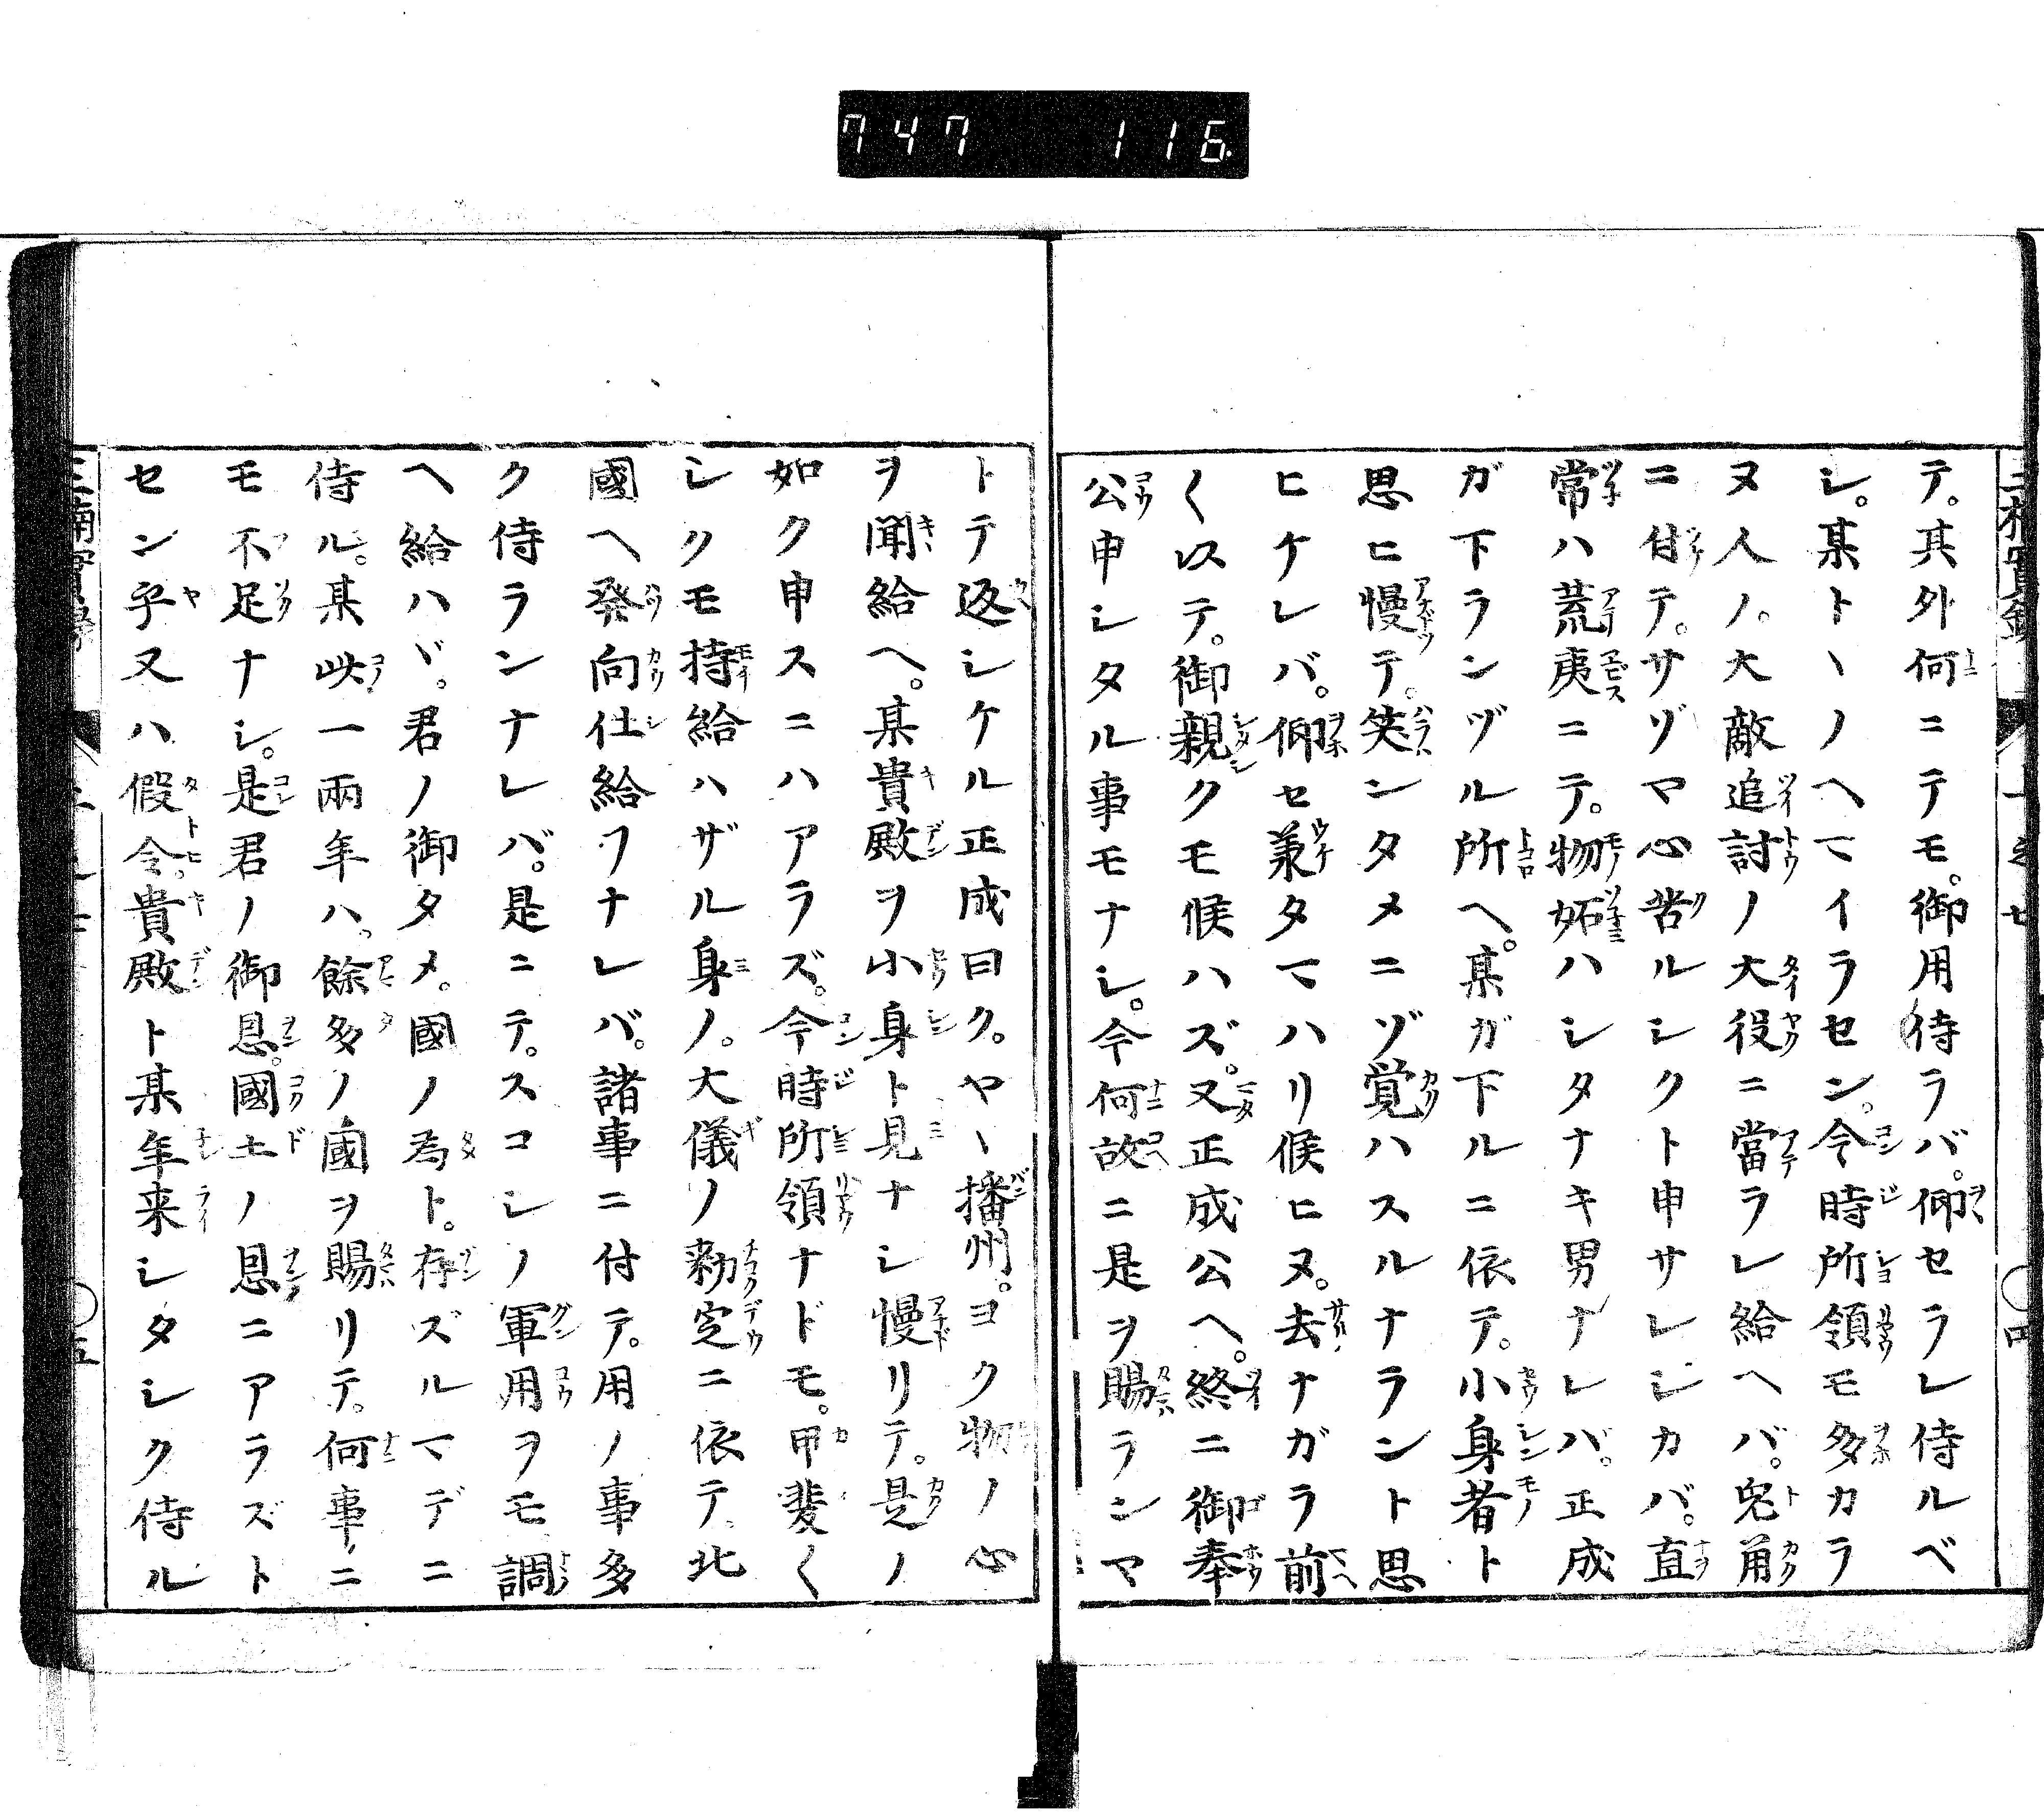 747 116
テ。其外何ニテモ。御用侍ラバ。仰セラレ侍ルベ
シ。某トヽノヘマイラセン。今時所領モ多カラ
ヌ人ノ。大敵追討ノ大役ニ當ラレ給ヘバ。兎角
ニ付テ。サゾマ心苦ルシクト申サレシカバ。直
常ハ荒夷ニテ。物妬ハシタナキ男ナレバ。正成
ガ下ランヅル所ヘ。某ガ下ルニ依テ。小身者ト
思ヒ慢テ。笑ンタメニゾ覚ハスルナラント思
ヒケレバ。仰セ兼タマハリ候ヒヌ。去ナガラ前
〱以テ。御親クモ候ハズ。又正成公ヘ。終ニ御奉
公申シタル事モナシ。今何故ニ是ヲ賜ランマ
トテ返シケル正成曰ク。ヤヽ播州。ヨク物ノ心
ヲ聞給ヘ。某貴殿ヲ小身ト見ナシ慢リテ。是ノ
如ク申スニハアラズ。今時所領ナドモ。甲斐〱
シクモ持給ハザル身ノ。大儀ノ勅定ニ依テ。北
國ヘ発向仕給フナレバ。諸事ニ付テ。用ノ事多
ク侍ランナレバ。是ニテ。スコシノ軍用ヲモ調
ヘ給ハヾ。君ノ御タメ。國ノ為ト。存ズルマデニ
侍ル。某此一兩年ハ。餘多ノ國ヲ賜リテ。何事ニ
モ不足ナシ。是君ノ御恩。國土ノ恩ニアラズト
センヤ又ハ假令。貴殿ト某年来シタシク侍ル